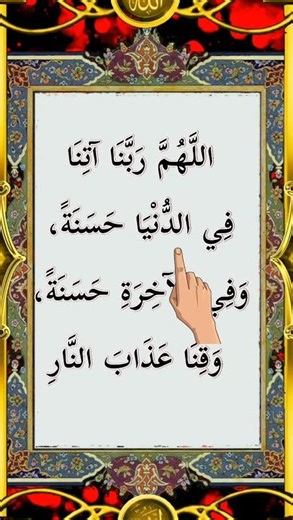 اللَّهُمَّ رَبَّنَا آتِنَا
فِي الدُّنْيَا حَسَنَةً،
وَفِي الآخِرَةِ حَسَنَةً،
وَقِنَا عَذَابَ النَّارِ